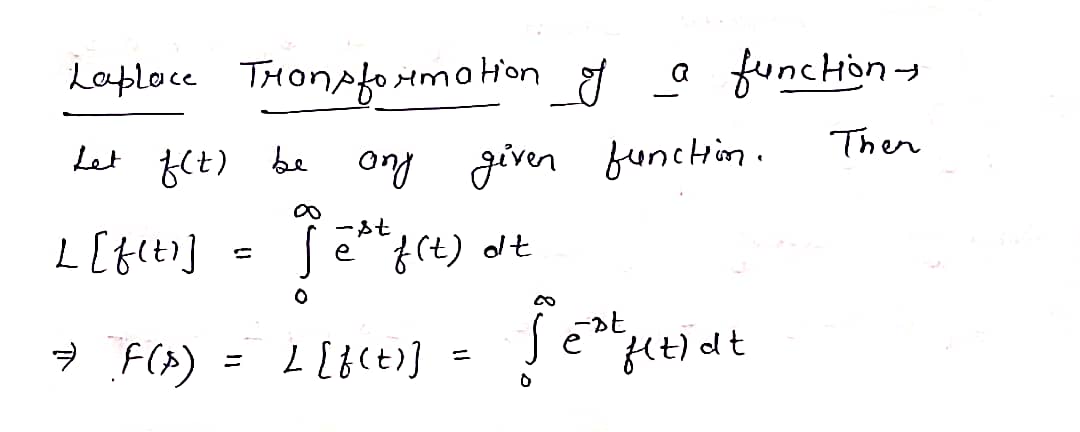 Laplace Transformation of a function →
Let f(t) be any given function. Then
L[f(t)] = ∫₀^∞ e^{-st} f(t) dt
⇒ F(s) = L[f(t)] = ∫₀^∞ e^{-st} f(t) dt